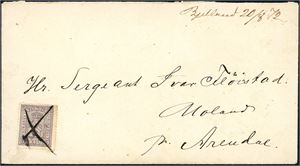 Bjelland 20/8 72
Hr. Sergeant Ivar Fløistad.
Moland
pr. Arendal.